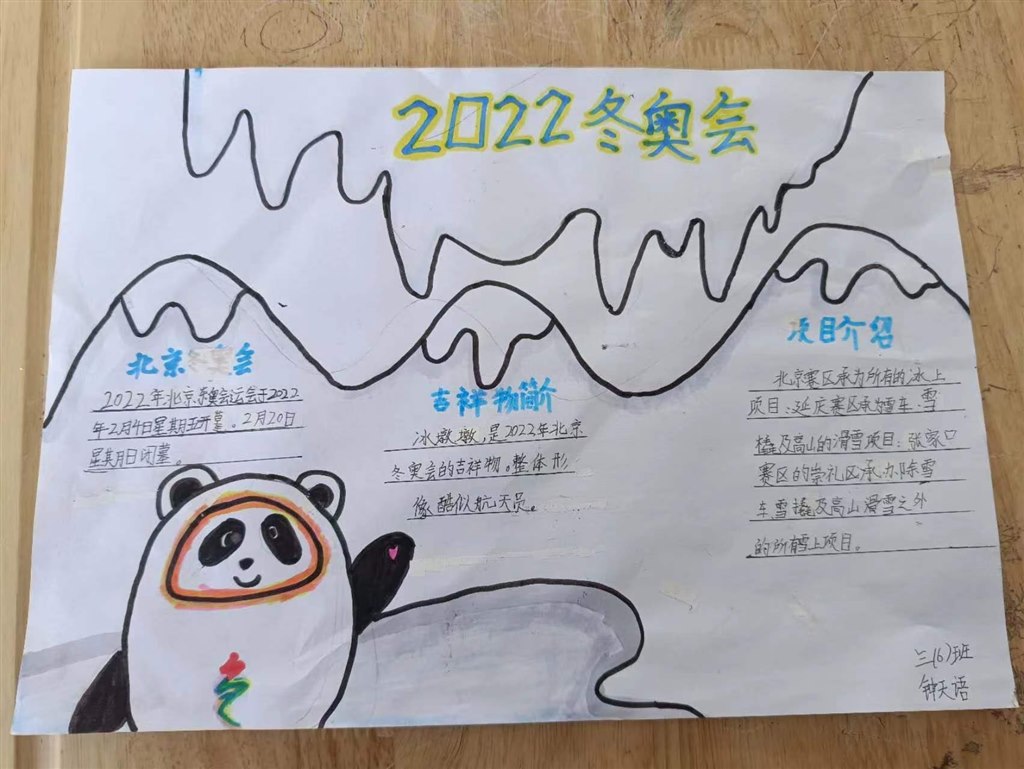 2022冬奥会
北京冬奥会
2022年北京冬奥会运会于2022
年2月4日星期五开幕。2月20日
星期日闭幕。
吉祥物简介
冰墩墩,是2022年北京
冬奥会的吉祥物。整体形
像酷似航天员。
项目介绍
北京赛区承为所有的冰上
项目;延庆赛区承为雪车、雪
橇及高山的滑雪项目;张家口
赛区的崇礼区承办除雪
车雪橇及高山滑雪之外
的所有雪上项目。
三(6)班
钟天语